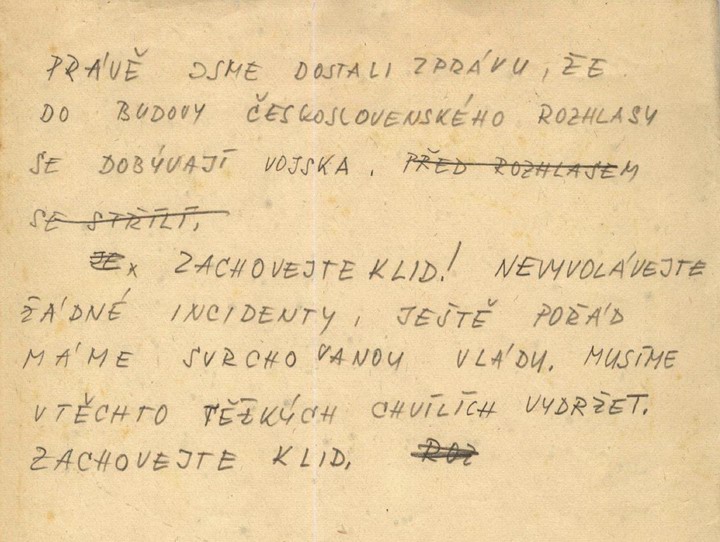 PRÁVĚ JSME DOSTALI ZPRÁVU, ŽE
DO BUDOVY ČESKOSLOVENSKÉHO ROZHLASY
SE DOBÝVAJÍ VOJSKA. PŘED ROZHLASEM
SE STŘÍLÍ.
JE x ZACHOVEJTE KLID! NEVYVOLÁVEJTE
ŽÁDNÉ INCIDENTY, JEŠTĚ POŘÁD
MÁME SVRCHOVANOU VLÁDU. MUSÍME
V TĚCHTO TĚŽKÝCH CHVÍLÍCH VYDRŽET.
ZACHOVEJTE KLID. ROZ